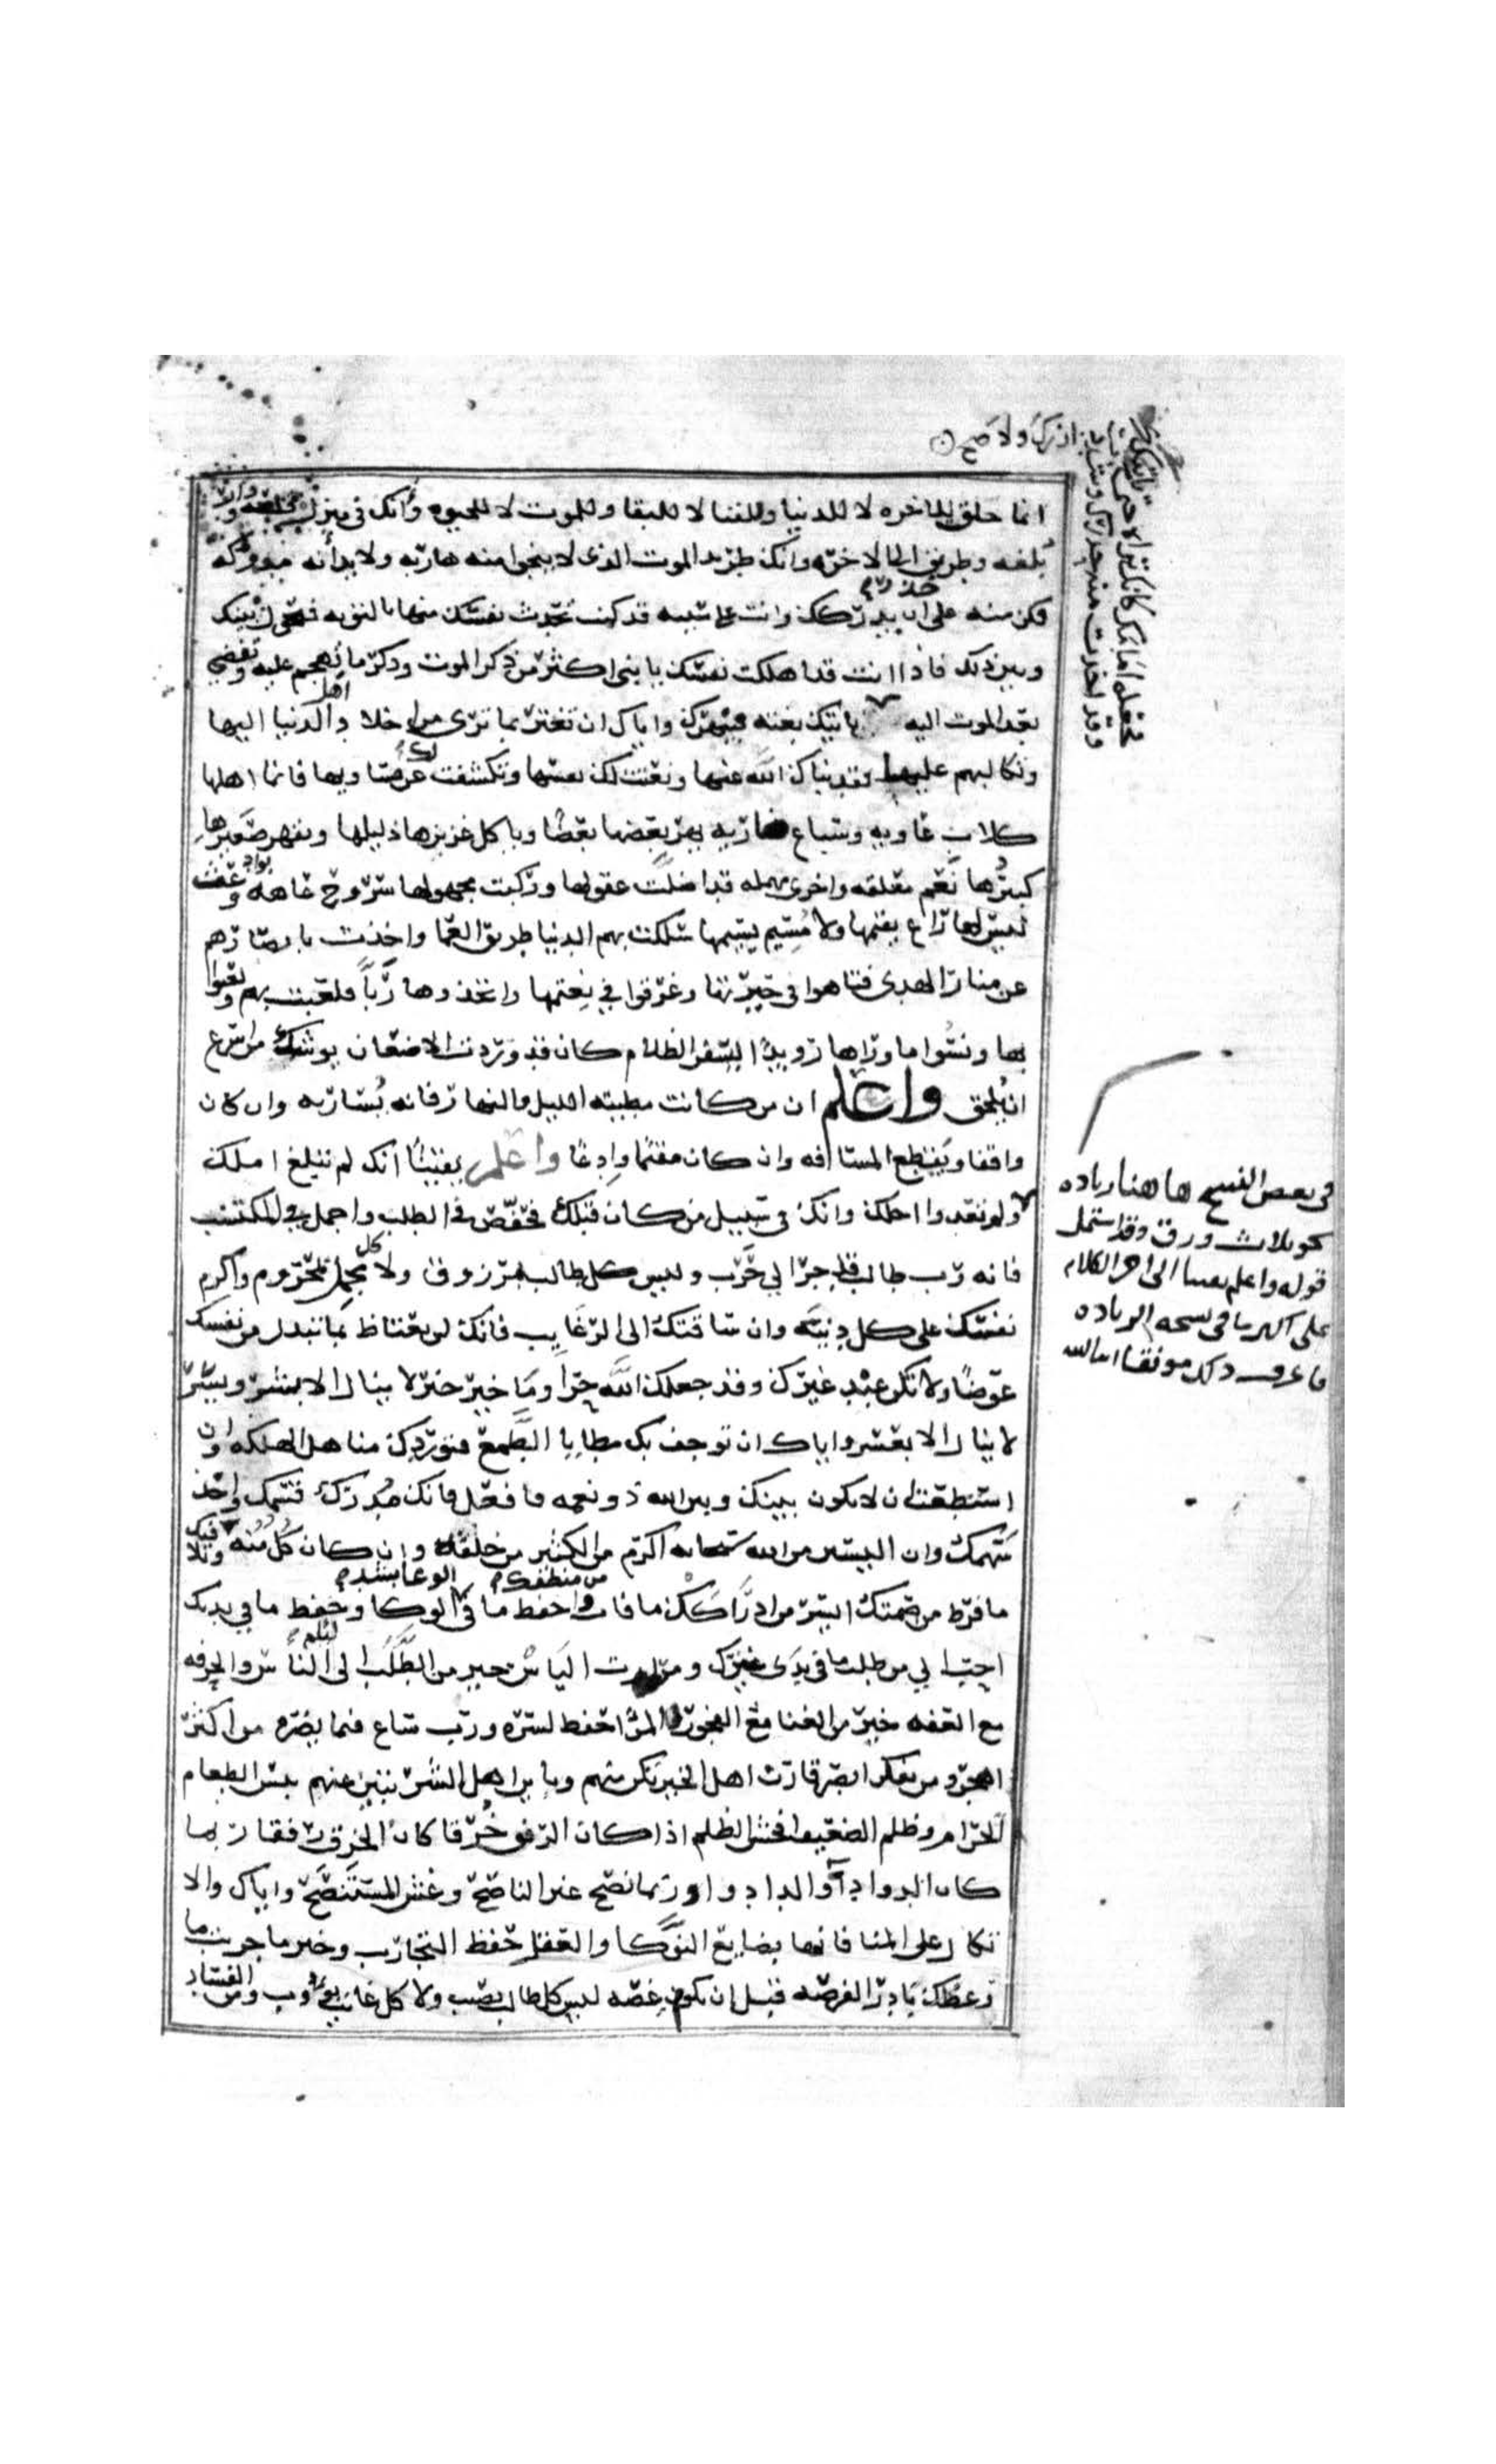 انما خلقت للاخره لا للدنيا وللفنا لا للبقا وللموت لا للحيوه وانك في منزل قلعه ودار
بلغه وطريق الى الاخره وانك طريد الموت الذي لا ينجوا منه هاربه ولا بد انه مدركه
فكن منه على حذر ان يدركك وانت على سيئه قد كنت تحدث نفسك منها بالتوبه فيحول بينك
وبين ذلك فاذا انت قد اهلكت نفسك يا بني اكثر من ذكر الموت وذكر ما تهجم عليه وتفضي
بعد الموت اليه
ياتيك بغته فيبهرك واياك ان تغتر بما ترى من اخلاد اهل الدنيا اليها
وتكالبهم عليها فقد نباك الله عنها ونعتت لك نفسها وتكشفت لك عن مساويها فانما اهلها
كلاب عاويه وسباع ضاريه يهر بعضها بعضا وياكل عزيزها ذليلها ويقهر صغيرها
كبيرها نعم معقله واخرى مهمله قد اضلت عقولها وركبت مجهولها سروح عاهه بواد وعث
ليس لها راع يقيمها ولا مسيم يسيمها سلكت بهم الدنيا طريق العما واخذت بابصارهم
عن منار الهدى فتاهوا في حيرتها وغرقوا في نعمتها واتخذوها ربا فلعبت بهم ولعبوا
بها ونسوا ما وراها رويدا يسفر الظلام كان قد وردت الاضعان يوشك من اسرع
ان يلحق واعلم ان من كانت مطيته الليل والنهار فانه يسار به وان كان
واقفا ويقطع المسافه وان كان مقيما وادعا واعلم يقينا انك لم تبلغ املك
ولم تعدوا اجلك وانك في سبيل من كان قبلك فخفض في الطلب واجمل في المكتسب
فانه رب طلب قد جر الى حرب وليس كل طالب بمرزوق ولا كل مجمل بمحروم واكرم
نفسك على كل دنيه وان ساقتك الى الرغايب فانك لن تعتاظ بما تبذل من نفسك
عوضا ولا تكن عبد غيرك وقد جعلك الله حرا وما خير خير لا ينال الا بشر ويسر
لا ينال الا بعسر واياك ان توجف بك مطايا الطمع فتوردك مناهل الهلكه وان
استطعت ان لا يكون بينك وبين الله ذو نعمه فافعل فانك مدرك قسمك واخذ
سهمك وان اليسير من الله سبحانه اكرم من الكثير من خلقه وان كان كل منه وتلافيك
ما فرط من صمتك ايسر من ادراكك ما فات من منطقك وحفظ ما في الوعا بشد الوكا وحفظ ما في يديك
احب الي من طلب ما في يدي غيرك ومراره الياس خير من الطلب الى الناس والحرفه
مع العفه خير من الغنا مع الفجور والمرء احفظ لسره ورب ساع فيما يضره من اكثر
اهجر ومن تفكر ابصر قارن اهل الخير تكن منهم وباين اهل الشر تبين عنهم بئس الطعام
الحرام وظلم الضعيف افحش الظلم اذا كان الرفق خرقا كان الخرق رفقا ربما
كان الدوا داء والدا دوا وربما نصح غير الناصح وغش المستنصح واياك والا
تكال على المنا فانها بضايع النوكا والعقل حفظ التجارب وخير ما جربت ما
وعظك بادر الفرصه قبل ان تكون غصه ليس كل طالب يصيب ولا كل غايب يؤوب ومن الفساد
في بعض النسخ هاهنا زياده
نحو ثلاث ورق وقد اشتمل
قوله واعلم يقينا الى اخر الكلام
على اكثر ما في نسخه الزياده
فاعرف ذلك موفقا ان شا الله